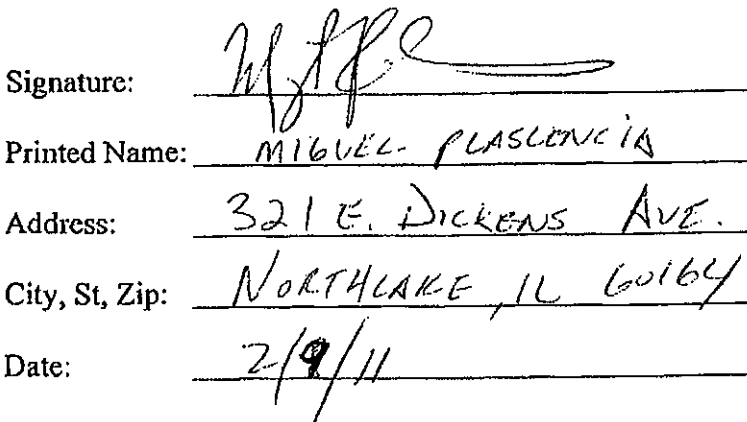 Signature:
Printed Name: MIGUEL PLASCENCIA
Address: 321 E. DICKENS AVE.
City, St, Zip: NORTHLAKE, IL 60164
Date: 2/9/11